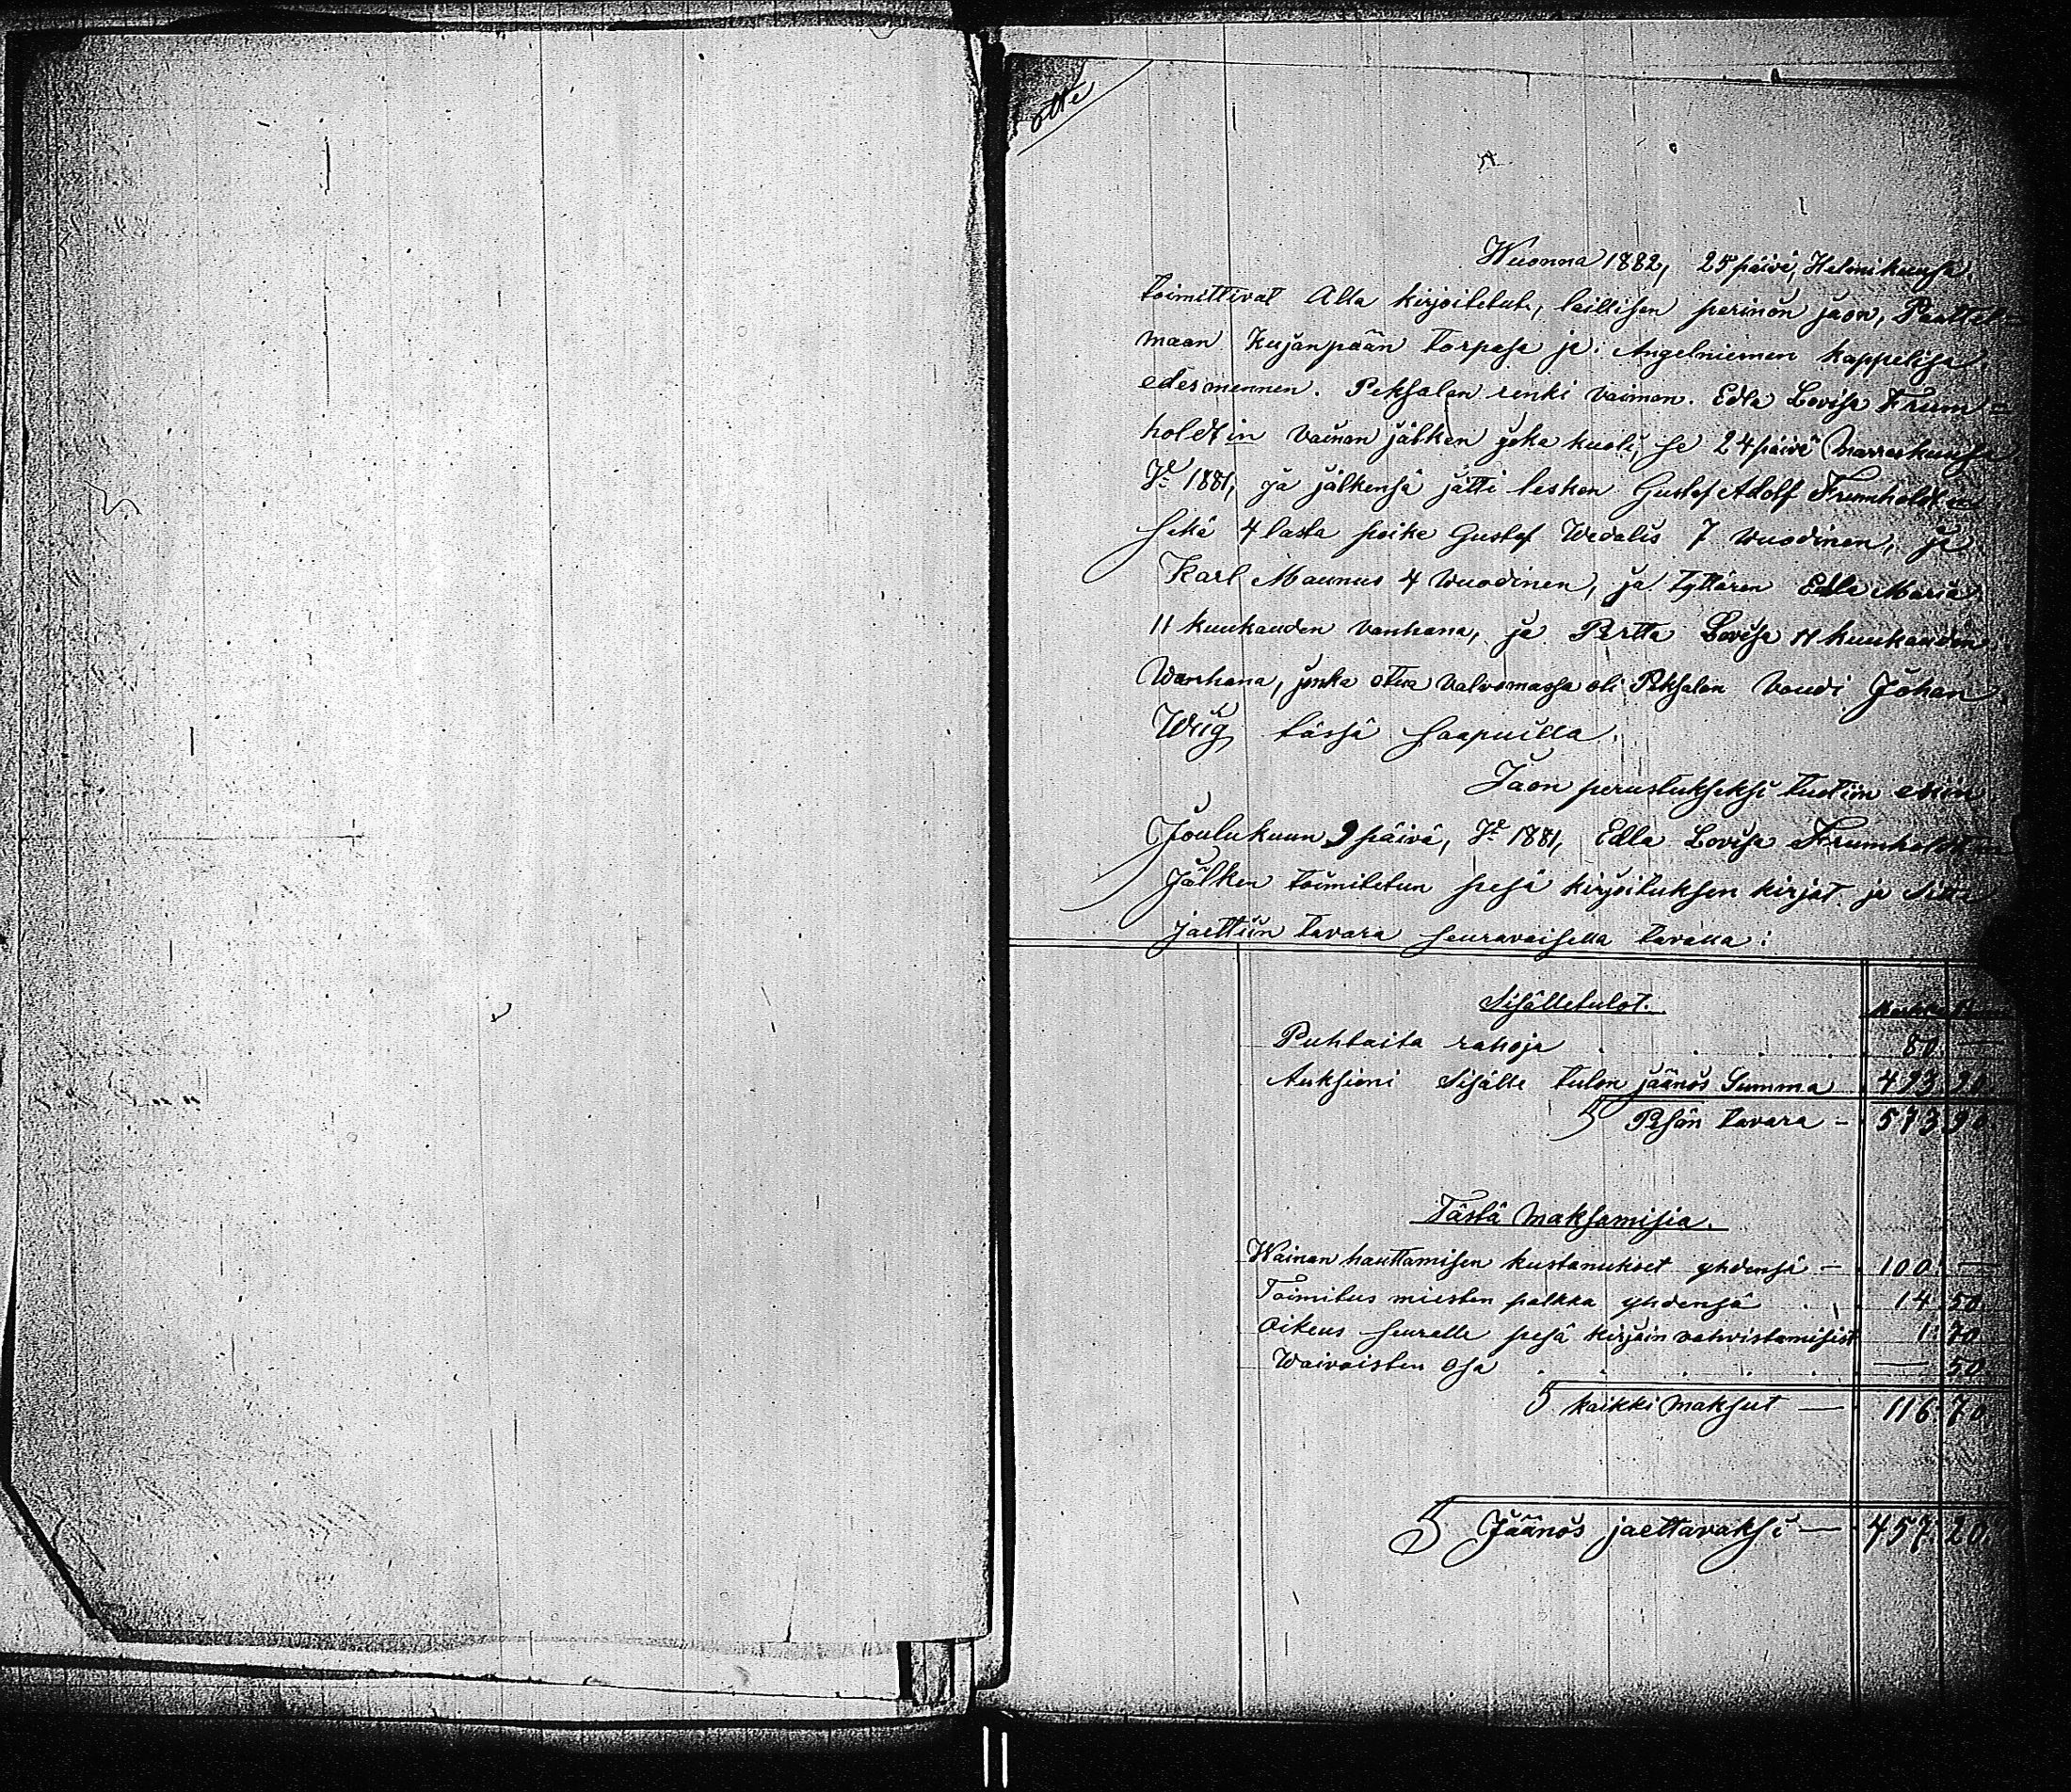 otte
Wuonna 1882, 25 päivä, Helmikuusa.
toimittivat Alla kirjoitetut, laillisen perinön jaon,
maan Kujanpään torpasa ja Angelniemen kappelisa.
edesmennen. Peksalan renki vaimon. Edla Lovisa Frum=
holdtin vainan jälken joka kuoli, se 24 päivä Marraskuusa
Je 1881, ja jälkensä jätti lesken Gustaf Adolf Frumholdtin
sekä 4 lasta poika Gustaf Wedalis 7 wuodinen, ja
Karl Maunus 4 Wuodinen, ja tyttären Edla Maria
11 kuukauden vanhana, ja Pertta Lovisa 11 kuukauden
Wanhana, jonka valvomassa oli Peksalan Voudi Johan
Wiig tässä saapuilla.
Jaon perustukseksi tuotiin esiin
Joulukuun 9 päivä, Je 1881, Edla Lovisa Frumholdtin
Jälken toimitetun pesä kirjoituksen kirjat ja Sitta
jaettiin tavara seuravaisella tavalla:
Sisälletulot. Markka
Puhtaita rahoja 80 —
Auksioni Sisälle tulon jäänös Summa 493 90
S Pesän tavara — 573 90
Tästä Maksamisia.
Wainan hauttamisen kustanukset yhdensä — 100 —
Toimitus miesten palkka yhdensä 14 50
Oikeus seuralle pesä kirjain vahvistamisist 1 70
Waivaisten osa — 50
S kaikki Maksut — 116 70
S Jäänös jaettavaksi — 457 20